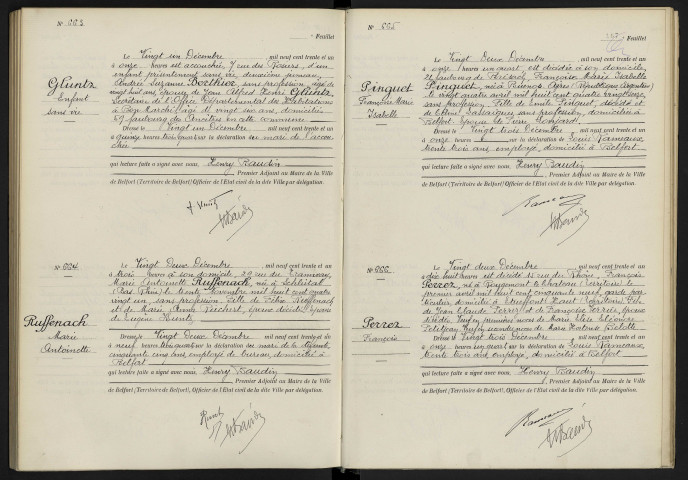 N° 663
Gluntz
Enfant
sans vie
Le Vingt un Décembre, mil neuf cent trente et un
à onze heures est accouchée, 7 rue des Rosiers, d'un
enfant présentement sans vie, deuxième jumeau,
Andrée Suzanne Berthier sans profession âgée de
vingt huit ans, épouse de Jean Alfred Henri Gluntz
Secrétaire de l'Office Départemental des Habitations
à Bon Marché âgé de vingt six ans, domiciliés
faubourg des Ancêtres en cette commune
Dressé le Vingt un Décembre, mil neuf cent trente et un
à quinze heures trois quarts sur la déclaration des mari de l'accou
chée
qui lecture faite a signé avec nous Henry Baudin
Premier Adjoint au Maire de la Ville
de Belfort (Territoire de Belfort) Officier de l'Etat civil de la dite Ville par délégation.
N° 664
Ruffenach
Marie
Antoinette
Le Vingt Deux Décembre, mil neuf cent trente et un
à trois heures à son domicile, 20 rue du Tramway
Marie Antoinette Ruffenach, née à Schlestat
(Bas Rhin) le trente Novembre mil huit cent quatre
vingt un, sans profession fille de Ruffenach
et de Marie Anne Reichert, époux décédés Epouse
de Eugène Kuntz
Dressé le Vingt Deux Décembre, mil neuf cent trente et un
à neuf heures sur la déclaration du mari de la défunte,
cinquante cinq ans, employé de bureau, domicilié à
Belfort
qui lecture faite a signé avec nous Henry Baudin
Premier Adjoint au Maire de la Ville
de Belfort (Territoire de Belfort), Officier de l'Etat civil de la dite Ville par délégation.
N° 665
Feuillet
Pinguet
Françoise Marie
Isabelle
Le Vingt Deux Décembre, mil neuf cent trente et un
à onze heures un quart, est décédée à son domicile,
21 faubourg de Brisach, Françoise Marie Isabelle
Pinguet, née à Buenos Ayres (République Argentine)
le vingt quatre avril mil huit cent quatre vingt onze,
sans profession, fille de Emile Pinguet, décédé et
de sans profession, domiciliée à
Belfort. Epouse de Pierre
Dressé le Vingt trois Décembre, mil neuf cent trente et un
à onze heures sur la déclaration de Louis Rameaux,
trente trois ans, employé, domicilié à Belfort
qui lecture faite a signé avec nous Henry Baudin
Premier Adjoint au Maire de la Ville
de Belfort (Territoire de Belfort) Officier de l'Etat civil de la dite Ville par délégation.
N° 666
Perroz
François
Le Vingt deux Décembre, mil neuf cent trente et un
à dix huit heures est décédé 15 rue du Rhône, François
Perroz, né à Rougemont le Château (Territoire) le
premier avril mil huit cent cinquante neuf, garde par
ticulier, domicilié à Etueffont Haut (Territoire) fils
de Jean Claude Perroz et de Françoise époux
décédés. Veuf en premières noces de Marie
Petitjean, Veuf en seconde noces de Marie
Dressé le Vingt trois Décembre, mil neuf cent trente et un
à onze heures sur la déclaration de Louis Rameaux
trente trois ans, employé, domicilié à Belfort
qui lecture faite a signé avec nous Henry Baudin
Premier Adjoint au Maire de la Ville
de Belfort (Territoire de Belfort) Officier de l'Etat civil de la dite Ville par délégation.